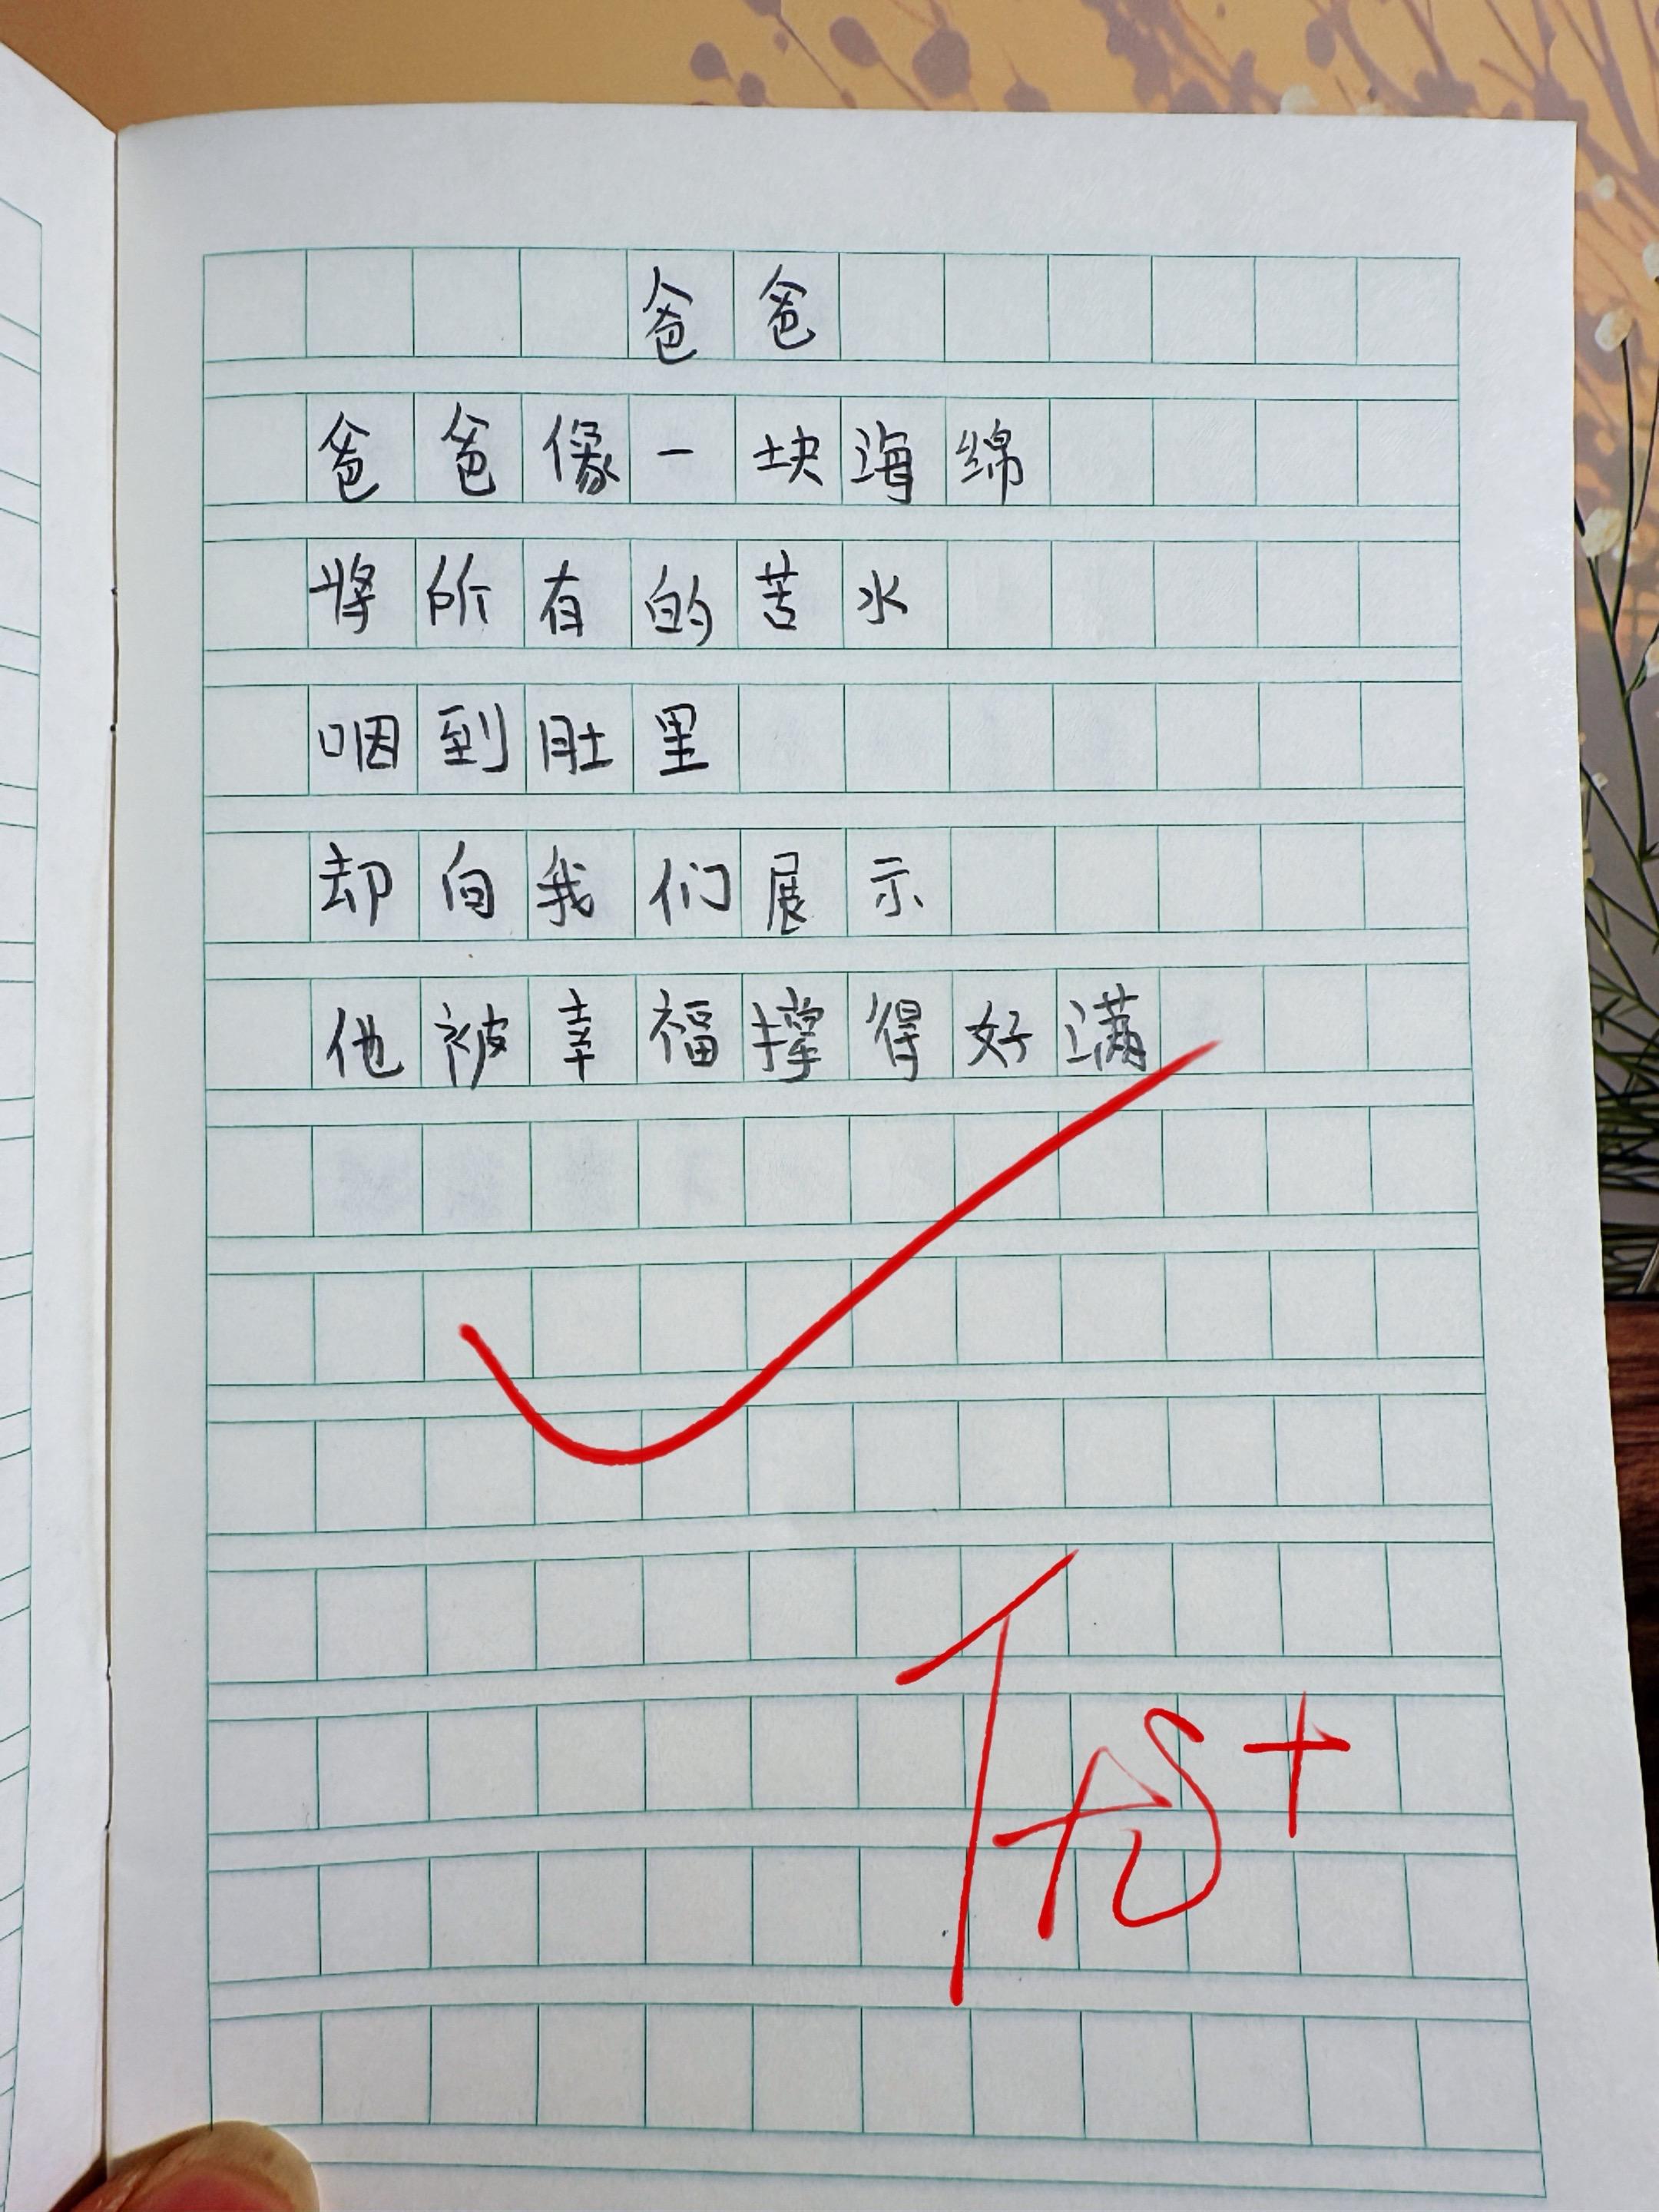 爸爸
爸爸像一块海绵
将所有的苦水
咽到肚里
却向我们展示
他被幸福撑得好满